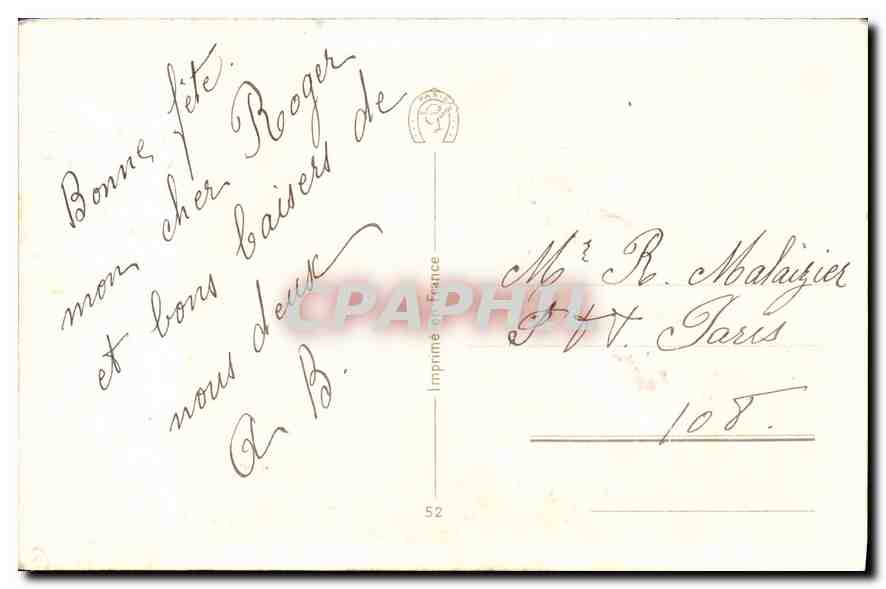 Bonne fête
mon cher Roger
et bons baisers de
nous deux
A B.
PARIS
Imprimé en France
52
Mr R. Malaizier
P.T.T. Paris
108.
CPAPHIL